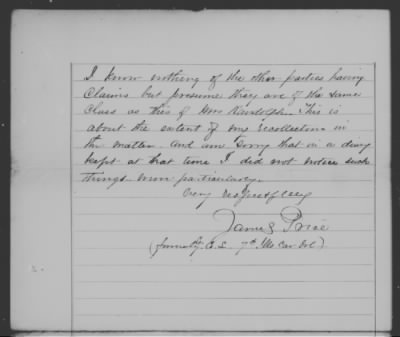 I know nothing of the other parties having
Claims but presume they are of the same
Class as this of Mrs Randolph. This is
about the extent of my recollection in
the matter. And am sorry that in a diary
kept at that time I did not notice such
things more particularly.
Very respectfully
James Price
(formerly A.S. 7th Mo Cav Vol)